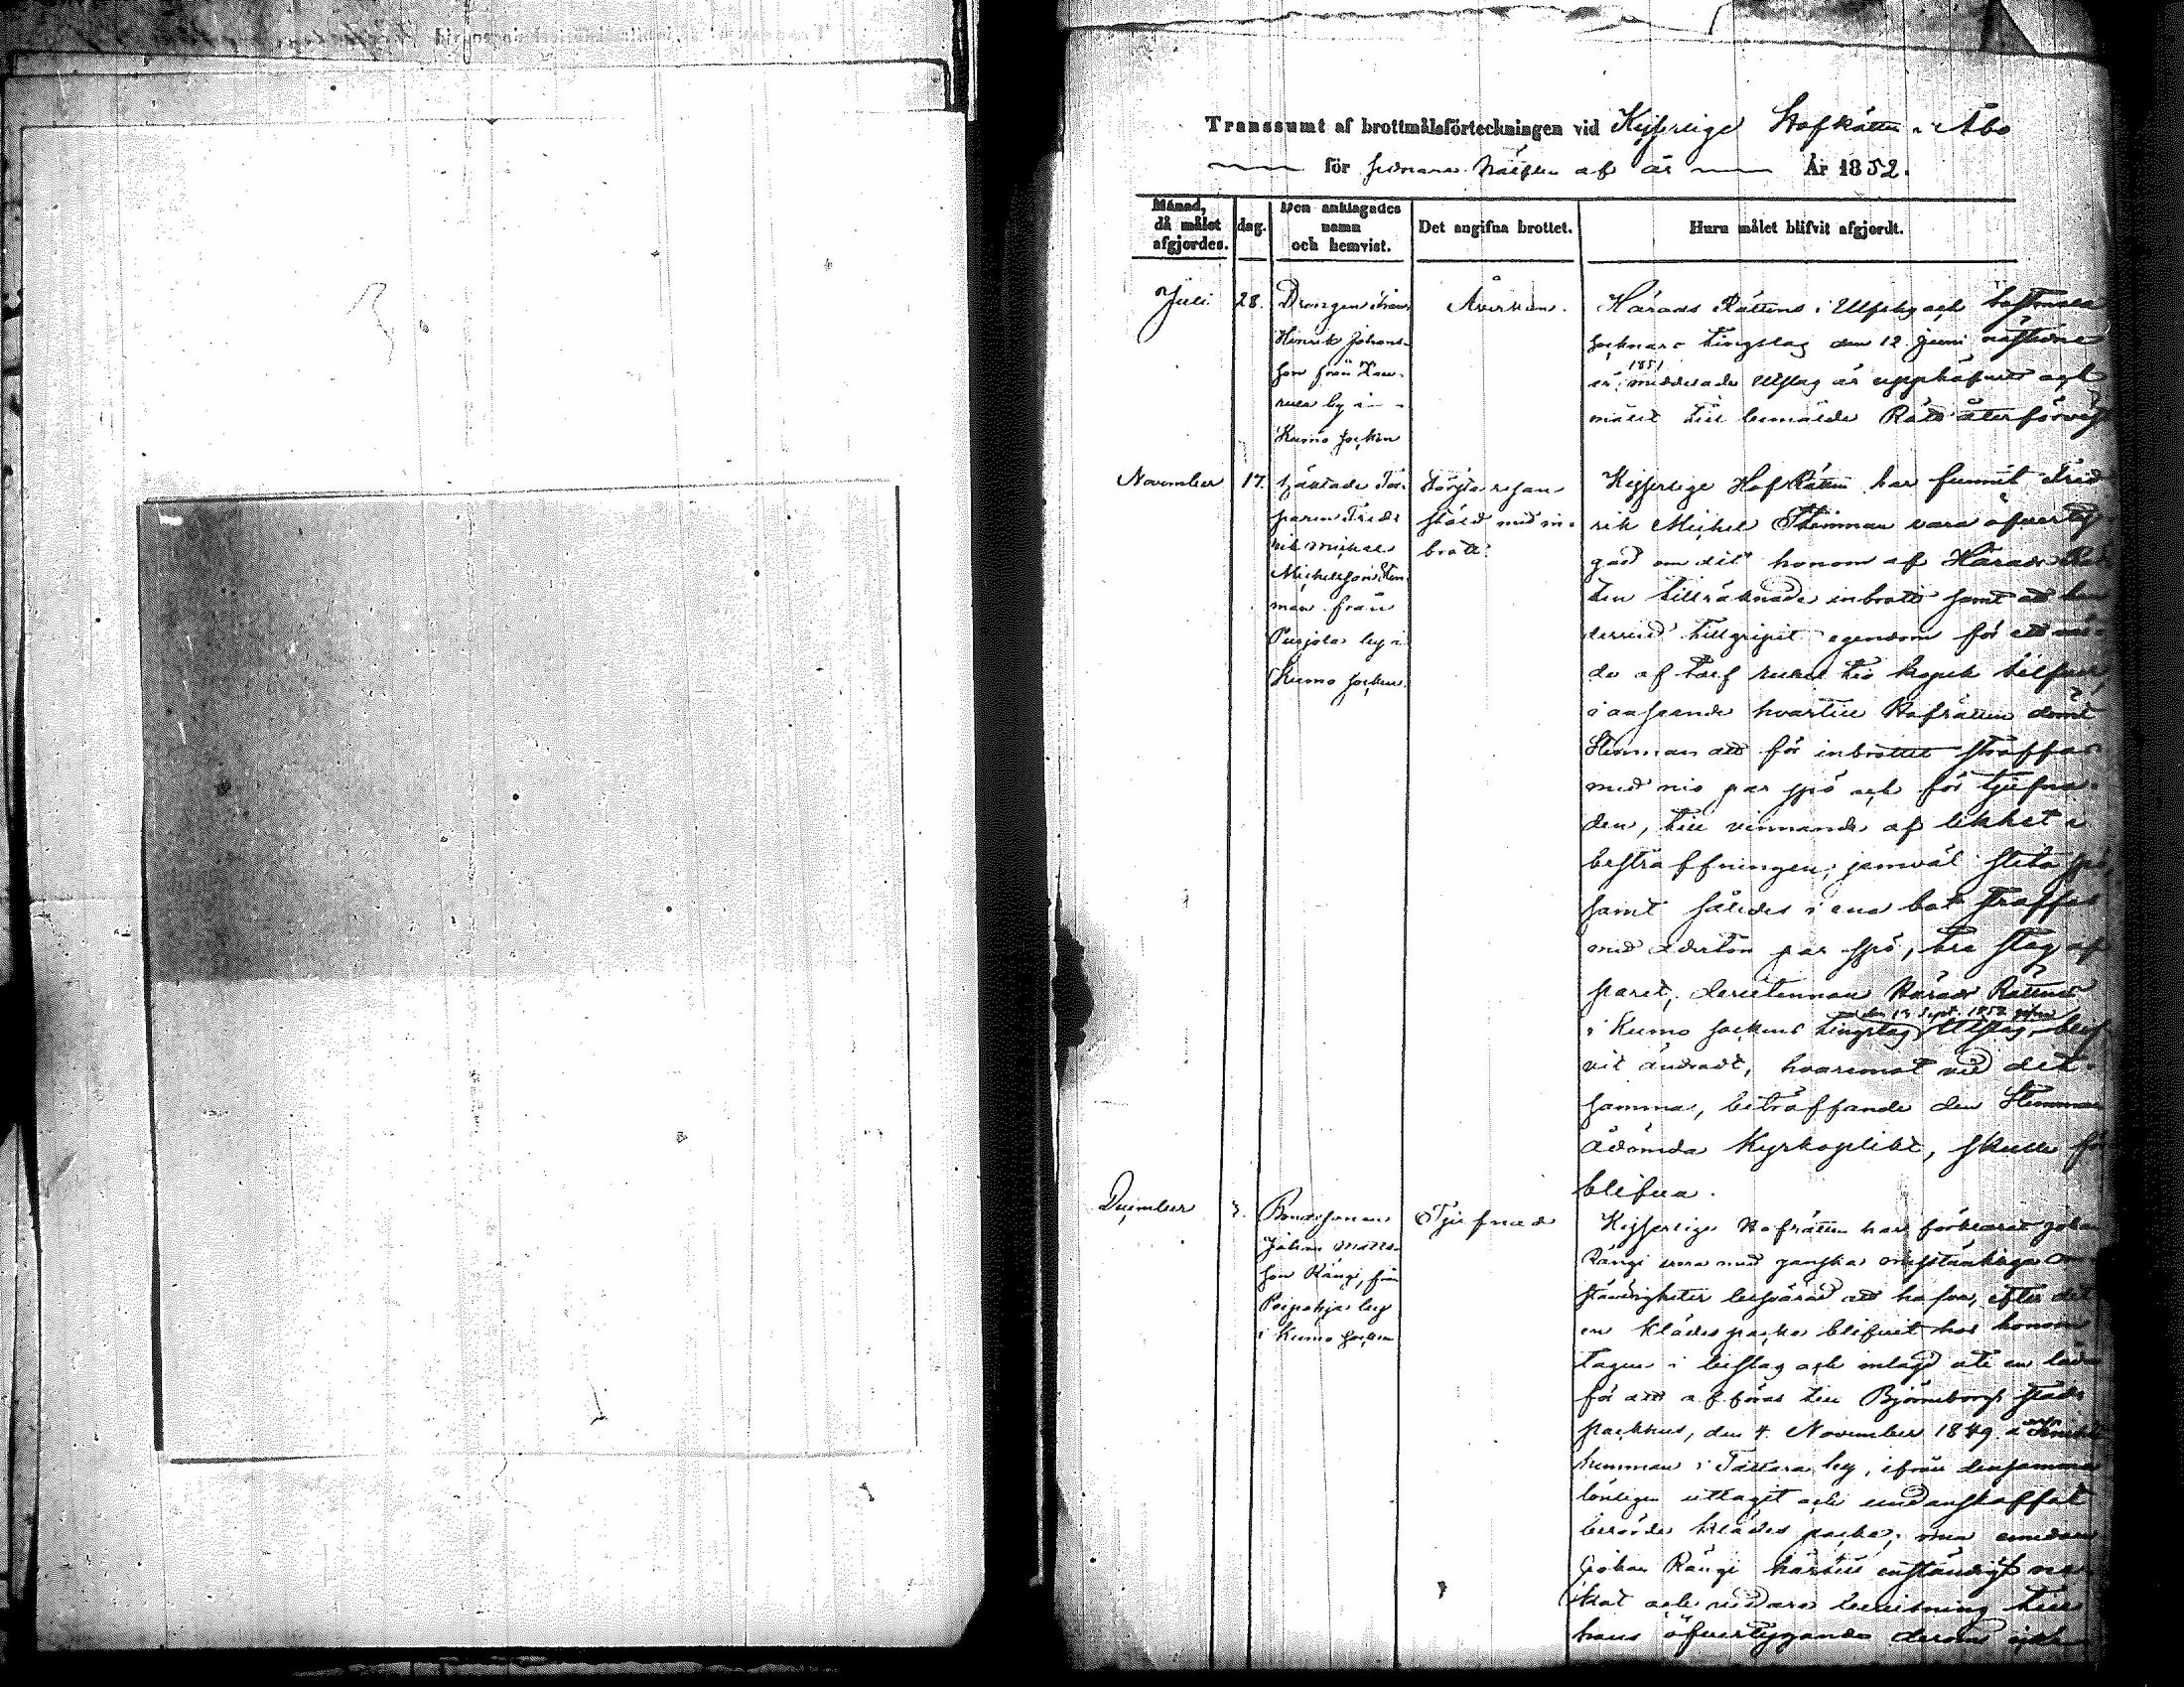 Transsumt af brottmålsförteckningen vid Kejserlige Hofrätten i Åbo
för sednare hälften af år År 1852.
Månad, då målet afgjordes.
dag.
Den anklagades namn och hemvist.
Det angifna brottet.
Huru målet blifvit afgjordt.
Juli
28.
Drengen Frans
Henrik Johans-
son från
by i
Kumo Socken
Åverkan.
Härads Rättens i Ulfsby och
Socknars Tingslag den 12 Juni nästledne
år 1851 meddelade Utslag är upphäfvet och
målet till bemälde Rätt återförvist
November
17.
Fred-
rik Michel
Michelsson Sten-
man från
Purjola by i
Kumo Socken.
Första resan
stöld med in-
brott.
Kejserlige HofRätten har funnit Fred-
rik Michel Stenman vara öfverty-
gad om det honom af Härads Rät-
ten tillräknade inbrott samt att han
dervid tillgripit egendom för ett vär-
de af tolf rubel tio kopek silfver,
i anseende hvartill Hofrätten dömt
Stenman att för inbrottet straffas
med nio par spö och för tjufna-
den, till vinnande af likhet i
bestraffningen, jemväl slita spö,
samt således i ena bot straffas
med aderton par spö, tre slag af
paret, derutinnan Härads Rättens
i Kumo Sockens Tingslag den 13 Sept. 1852 gifna Utslag blif-
vit ändradt, hvaremot vid det-
samma, beträffande den Stenman
ådömda Kyrkoplikt, skulle få
blifva.
December
3.
Bondesonen
Johan Matts-
son Rängi, från
Peipohja by
i Kumo Socken
Tjufnad
Kejserlige Hofrätten har förklarat Johan
Rängi vara med ganska misstänkliga om-
ständigheter besvärad att hafva, efter det
en klädespacka blifvit hos honom
tagen i beslag och inlagd uti en låda
för att afföras till Björneborgs stads
packhus, den 4 November 1849 å
hemman i Tattara by, ifrån densamma
lönligen uttaget och undanskaffat
berörde klädes packe; men emedan
Johan Rängi härtill enständigt ne-
kat och vidare bevisning till
hans öfvertygande derom icke